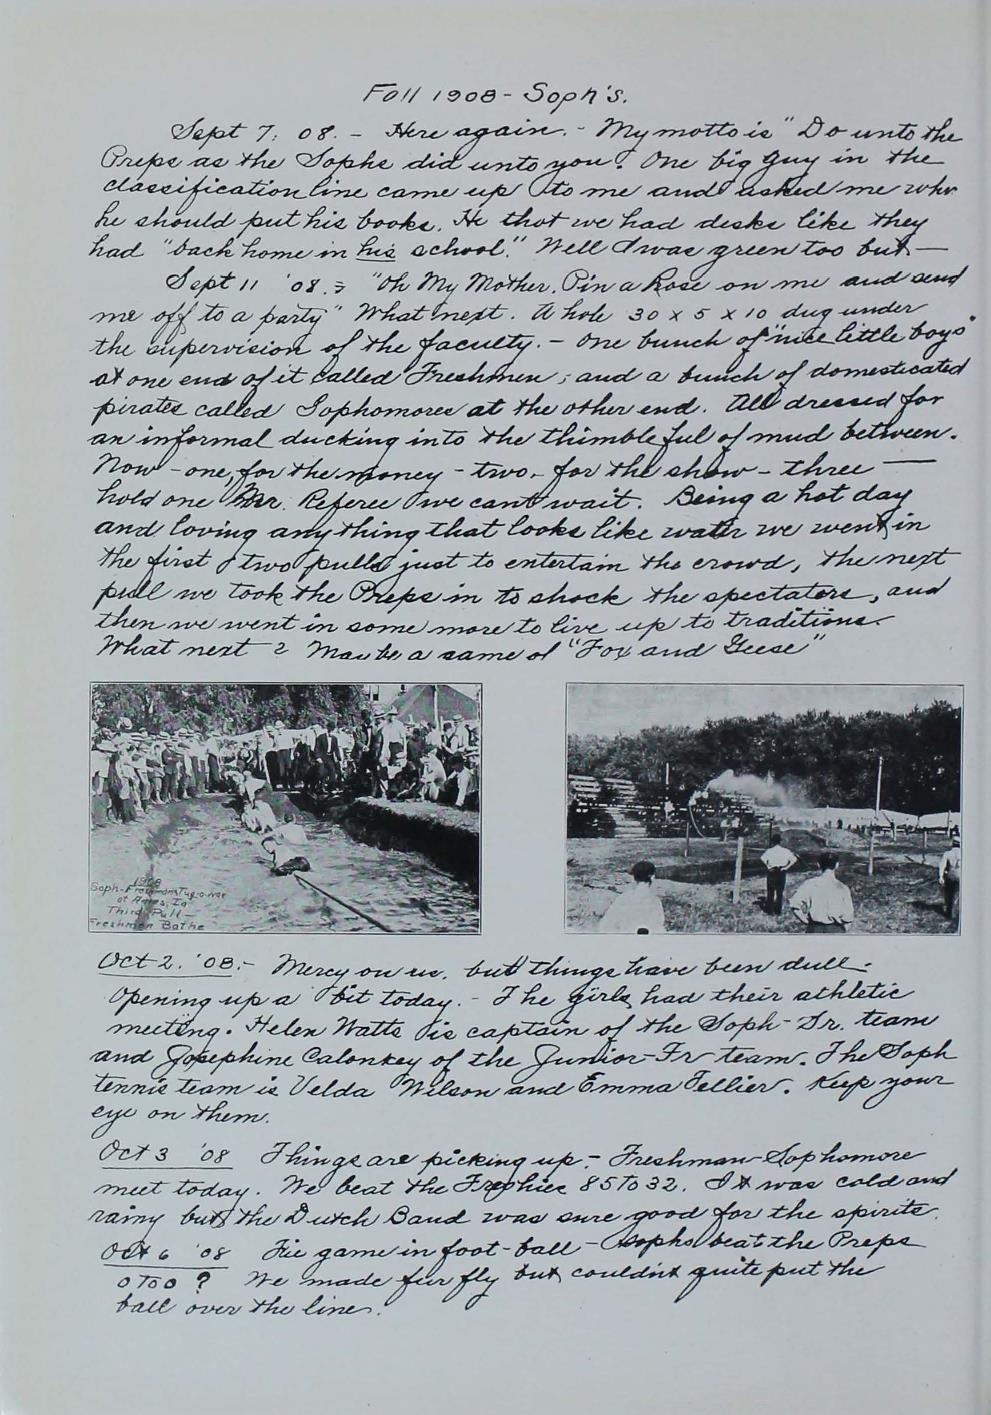 Fall 1908 - Soph's.
Sept 7, 08. - Here again. - My motto is "Do unto the
Preps as the Sophs did unto you". One big guy in the
classification line came up to me and asked me whr
he should put his books. He thot we had desks like they
had "back home in his school." Well I was green too but —
Sept 11 '08. - "Oh My Mother. Pin a Rose on me and send
me off to a party" What next. A hole 30 x 5 x 10 dug under
the supervision of the faculty. - One bunch of "nice little boys"
at one end of it called Freshmen; and a bunch of domesticated
pirates called Sophomores at the other end. All dressed for
an informal ducking into the thimble ful of mud between.
Now - one, for the money - two, for the show - three —
hold one Mr. Referee we cant wait. Being a hot day
and loving anything that looks like water we went in
the first two pulls just to entertain the crowd, the next
pull we took the Preps in to shock the spectators, and
then we went in some more to live up to traditions.
What next? Maybe a game of "Fox and Geese"
1908
Soph-Freshman Tug-o-War
at Ames, Ia
Third Pull -
Freshmen Bathe
Oct 2. '08. - Mercy on us, but things have been dull.
Opening up a bit today. - The girls had their athletic
meeting. Helen Watts is captain of the Soph-Sr. team
and Josephine Calonkey of the Junior-Fr team. The Soph
tennis team is Velda Wilson and Emma Tellier. Keep your
eye on them.
Oct 3 '08 Things are picking up. - Freshman-Sophomore
meet today. We beat the Freshies 85 to 32. It was cold and
rainy but the Dutch Band was sure good for the spirits.
Oct 6 '08 Tie game in foot-ball - Sophs beat the Preps
0 to 0? We made fur fly but couldn't quite put the
ball over the line.